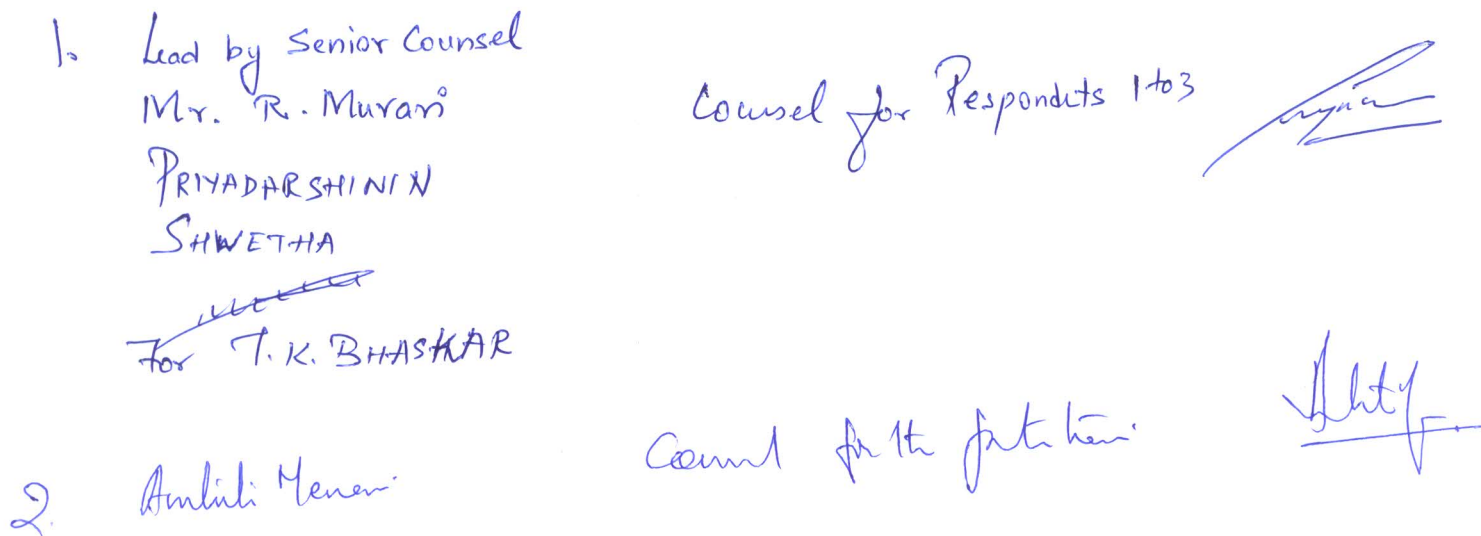 1. Lead by Senior Counsel
Mr. R. Murari
PRIYADARSHINI N
SHWETHA
For T. K. BHASKAR
Counsel for Respondets 1 to 3
2. Ambili Menon
Counsel for the petitioner